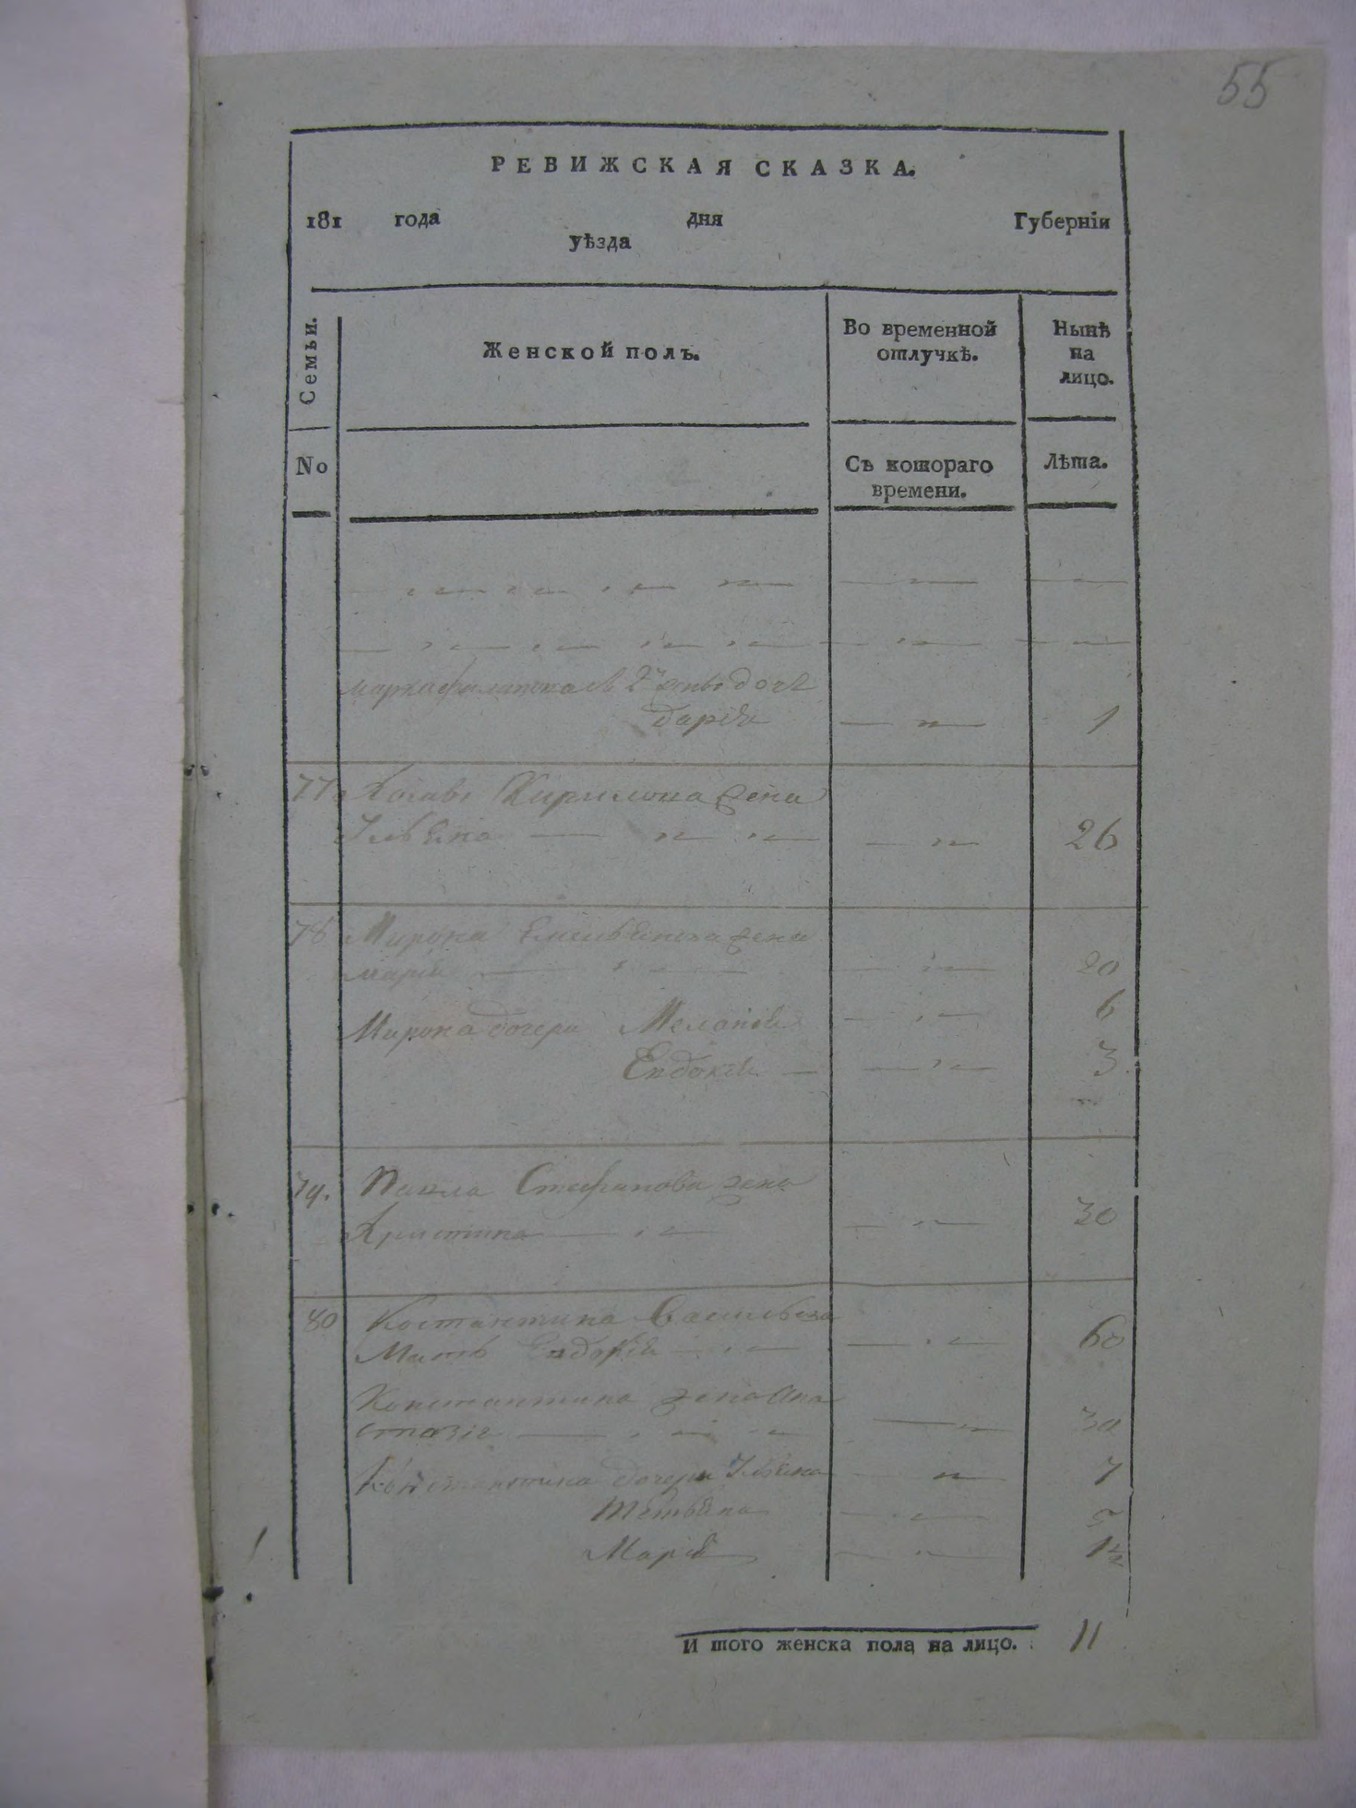 55
РЕВИЖСКАЯ СКАЗКА.
181 года дня Губерніи
уѣзда
Семьи.
Женской полъ.
Во временной отлучкѣ.
Нынѣ на лицо.
No
Съ котораго времени.
Лѣта.
дочь
Дарія 1
77 Кирилова жена
26
78 Мирона жена
Марія 20
Мирона дочери Меланія 6
Евдокія 3
79. Павла Стефанова жена
Христина 30
80 Костантина Васильева
Мать Евдокія 60
Константина жена Ана
стазіе 30
Константина дочери 7
Тетьяна 5
Марія 1
И того женска пола на лицо. 11